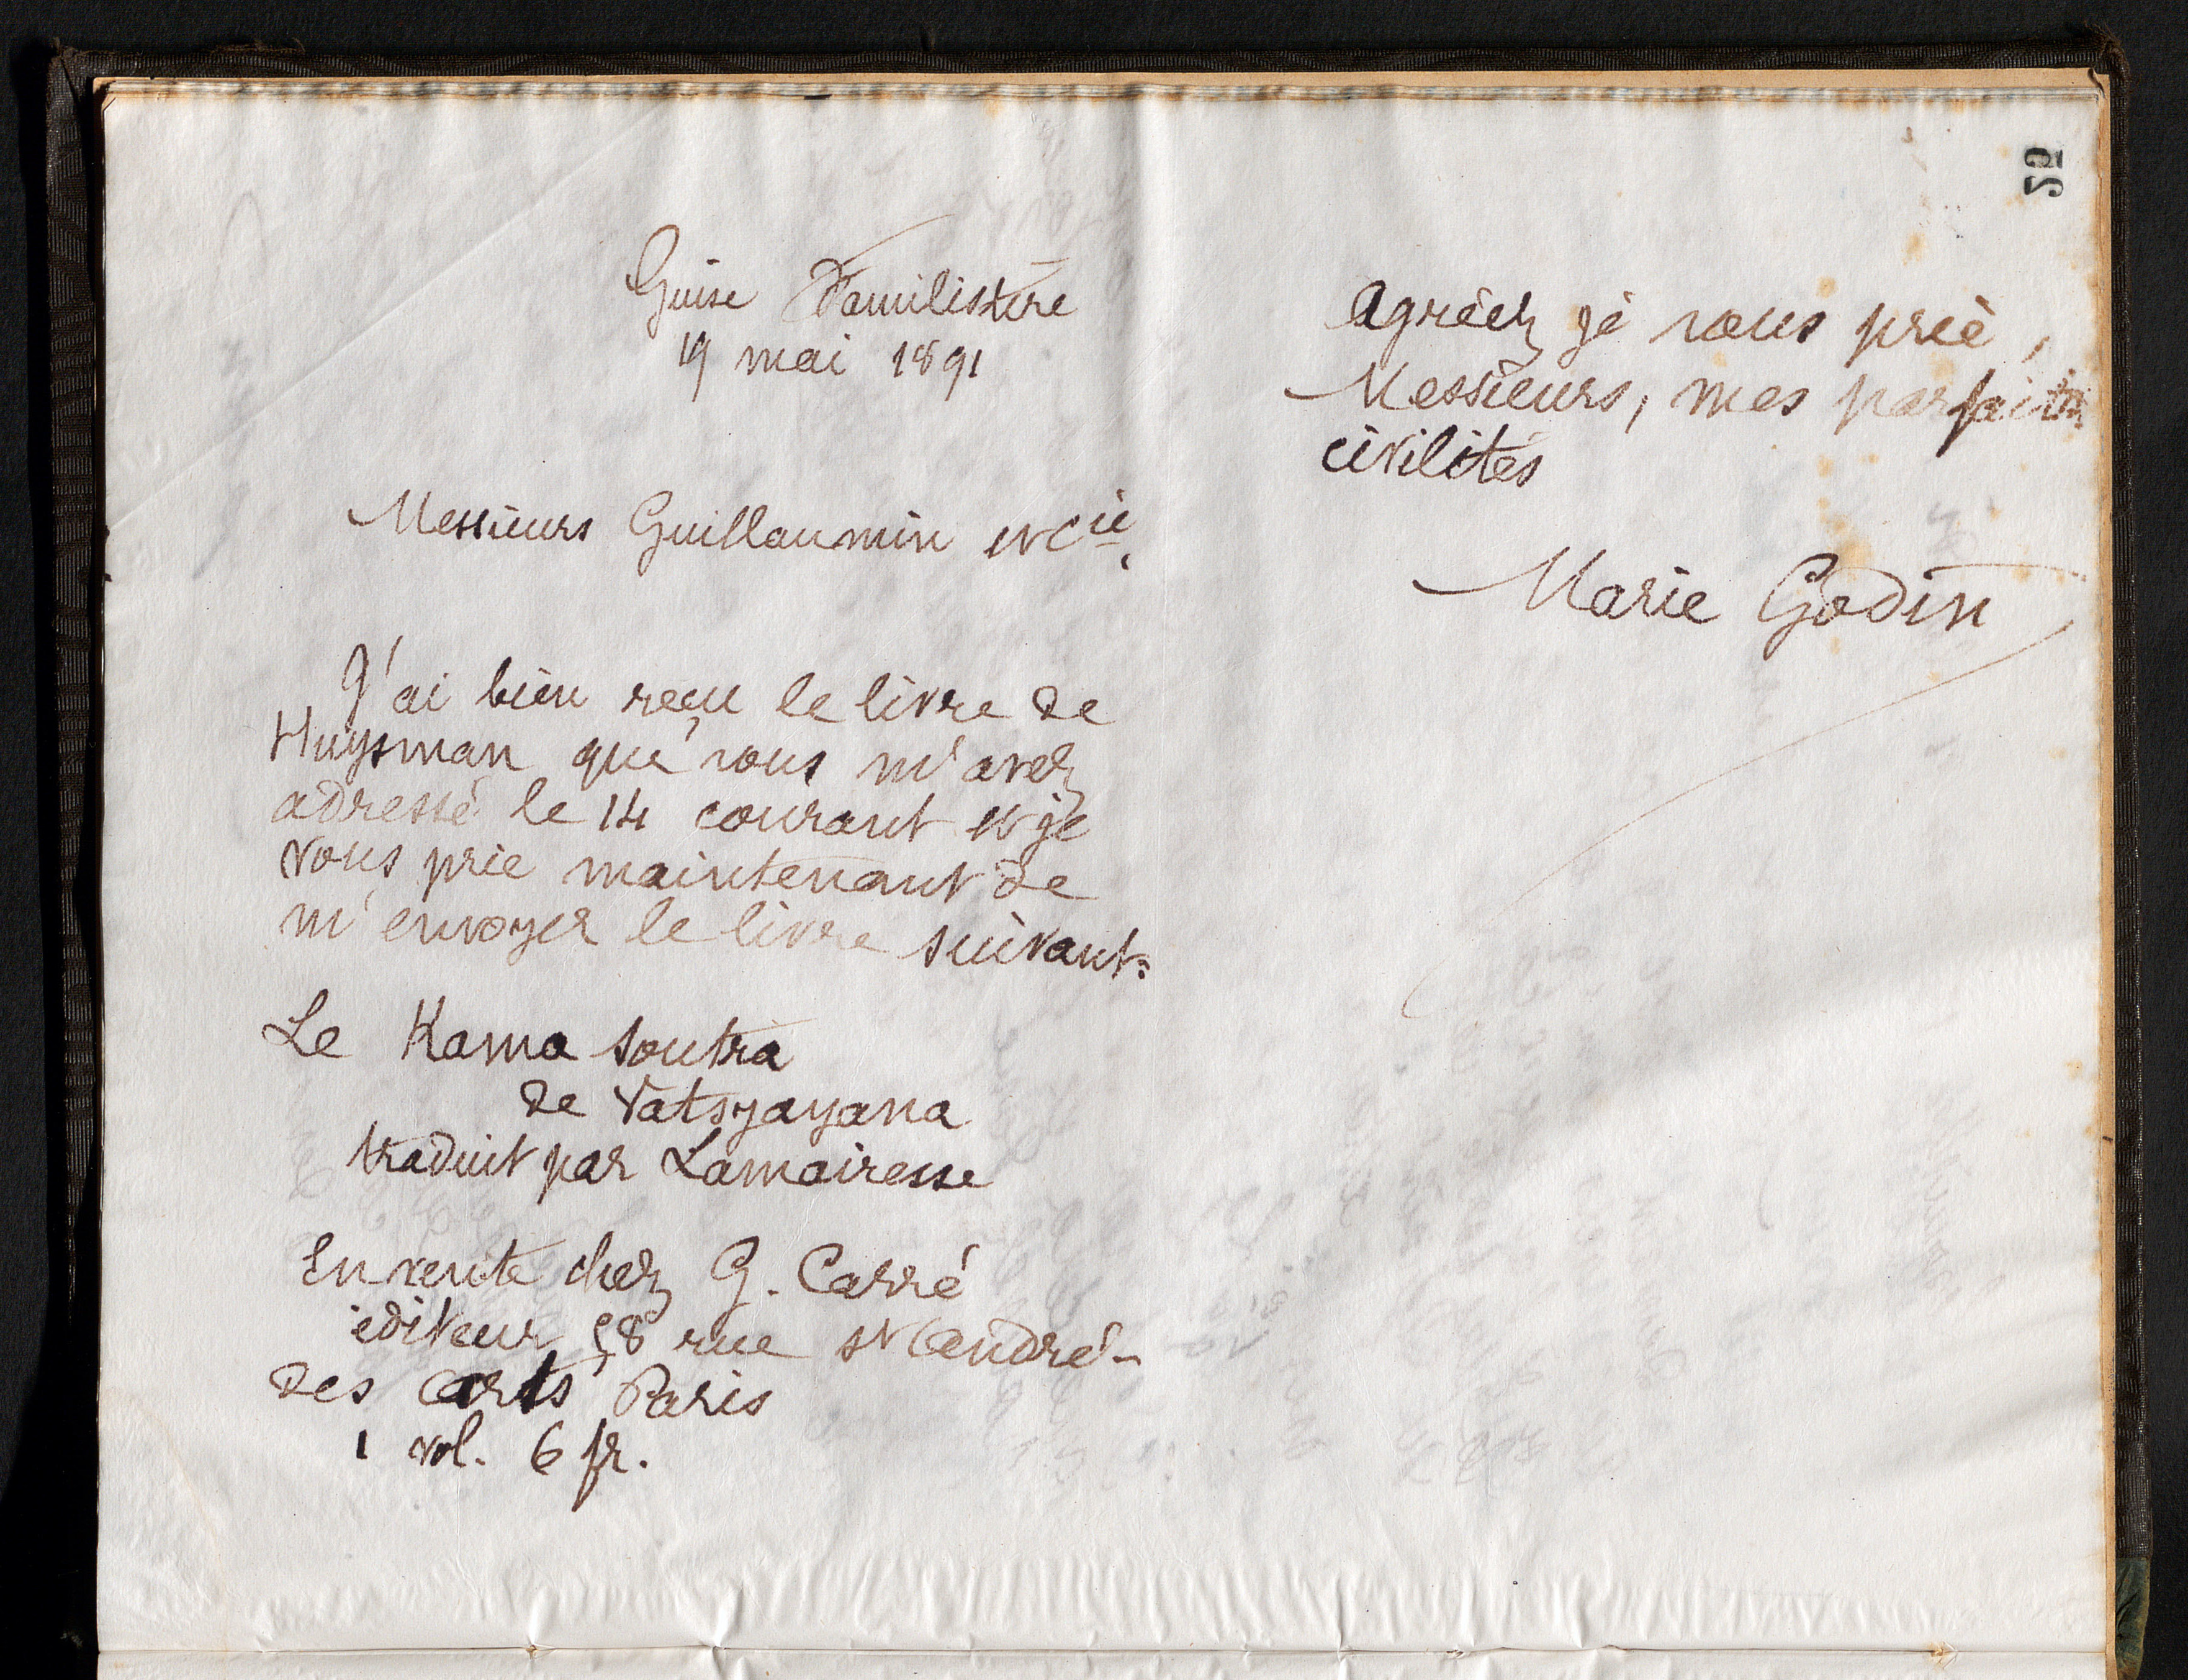 Guise Familistère
19 mai 1891
Messieurs Guillaumin et Cie,
J'ai bien reçu le livre de
Huysman que vous m'avez
adressé le 14 courant et je
vous prie maintenant de
m'envoyer le livre suivant:
Le Kama soutra
de Vatsyayana
traduit par Lamairesse
En vente chez G. Carré
éditeur 58 rue St André-
des Arts Paris
1 vol. 6 fr.
52
Agréez je vous prie,
Messieurs, mes parfaites
civilités
Marie Godin